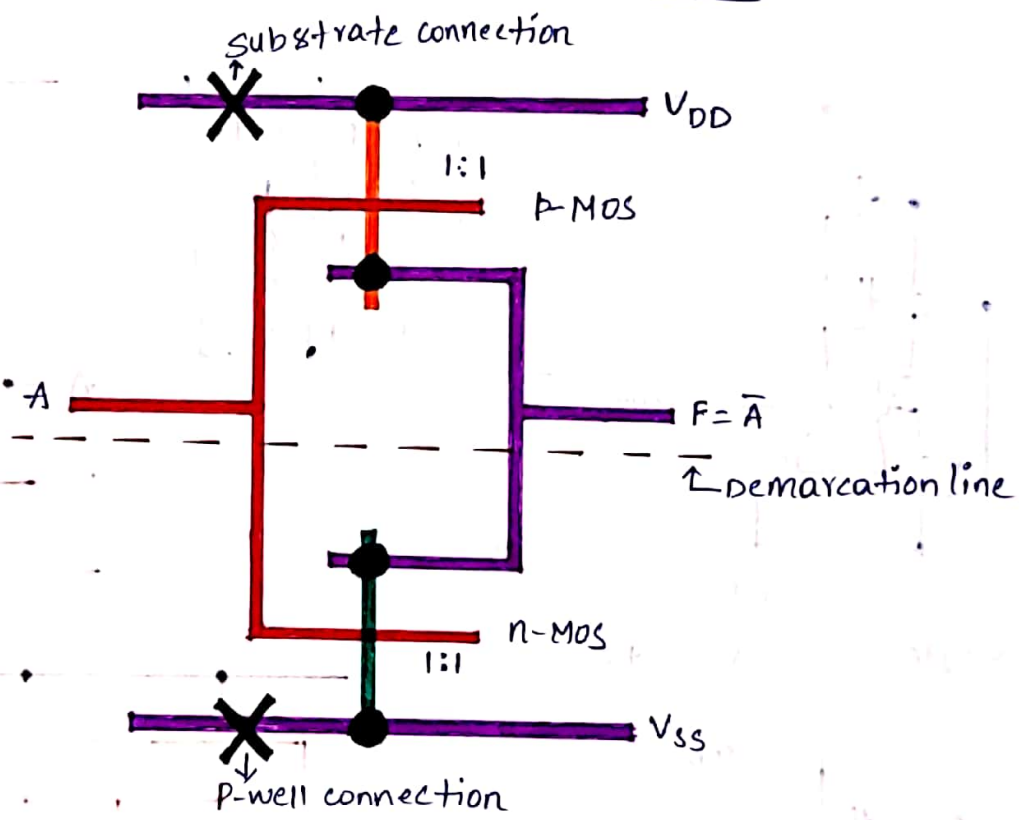 substrate connection
VDD
1:1
p-MOS
A
F = A̅
Demarcation line
n-MOS
1:1
VSS
P-well connection